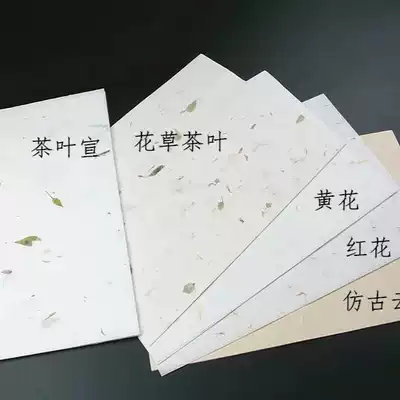 茶叶宣
花草茶叶
黄花
红花
仿古云